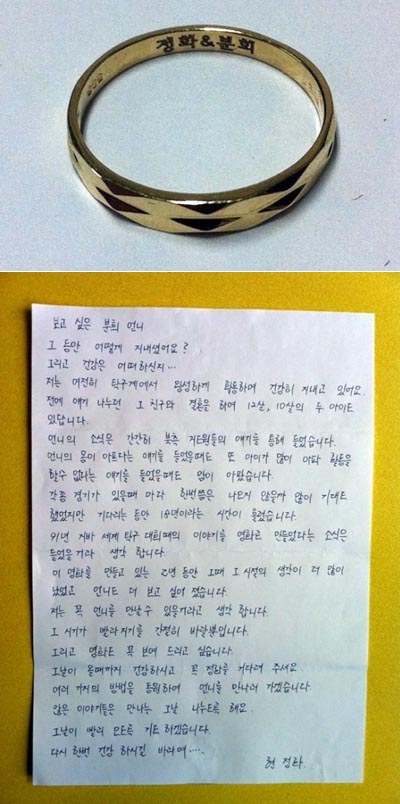 정화&분희
보고 싶은 분희 언니
그 동안 어떻게 지내셨어요?
그리고 건강은 어떠하신지...
저는 여전히 탁구계에서 왕성하게 활동하며 건강히 지내고 있어요.
전에 얘기 나누던 그 친구와 결혼을 하여 12살, 10살의 두 아이도
있답니다.
언니의 소식은 간간히 북측 임원들의 얘기를 통해 들었습니다.
언니의 몸이 아프다는 얘기를 들었을때도 또 아이가 많이 아파 활동을
할수 없다는 얘기를 들었을때도 맘이 아팠습니다.
각종 경기가 있을때 마다 한번쯤은 나오지 않을까 많이 기대도
했었지만 기다리는 동안 18년이라는 시간이 흘렀습니다.
91년 지바 세계 탁구 대회때의 이야기를 영화로 만들었다는 소식은
들었을거라 생각 합니다.
이 영화를 만들고 있는 2년 동안 그때 그 시절의 생각이 더 많이
났었고 언니도 더 보고 싶어 졌습니다.
저는 꼭 언니를 만날수 있을거라고 생각 합니다.
그 시기가 빨라지기를 간절히 바랄뿐입니다.
그리고 영화도 꼭 보여 드리고 싶습니다.
그날이 올때까지 건강하시고 꼭 정화를 기다려 주세요.
여러 가지의 방법을 동원하여 언니를 만나러 가겠습니다.
많은 이야기들은 만나는 그날 나누도록 해요.
그날이 빨리 오도록 기도 하겠습니다.
다시 한번 건강 하시길 바라며....
현 정화.